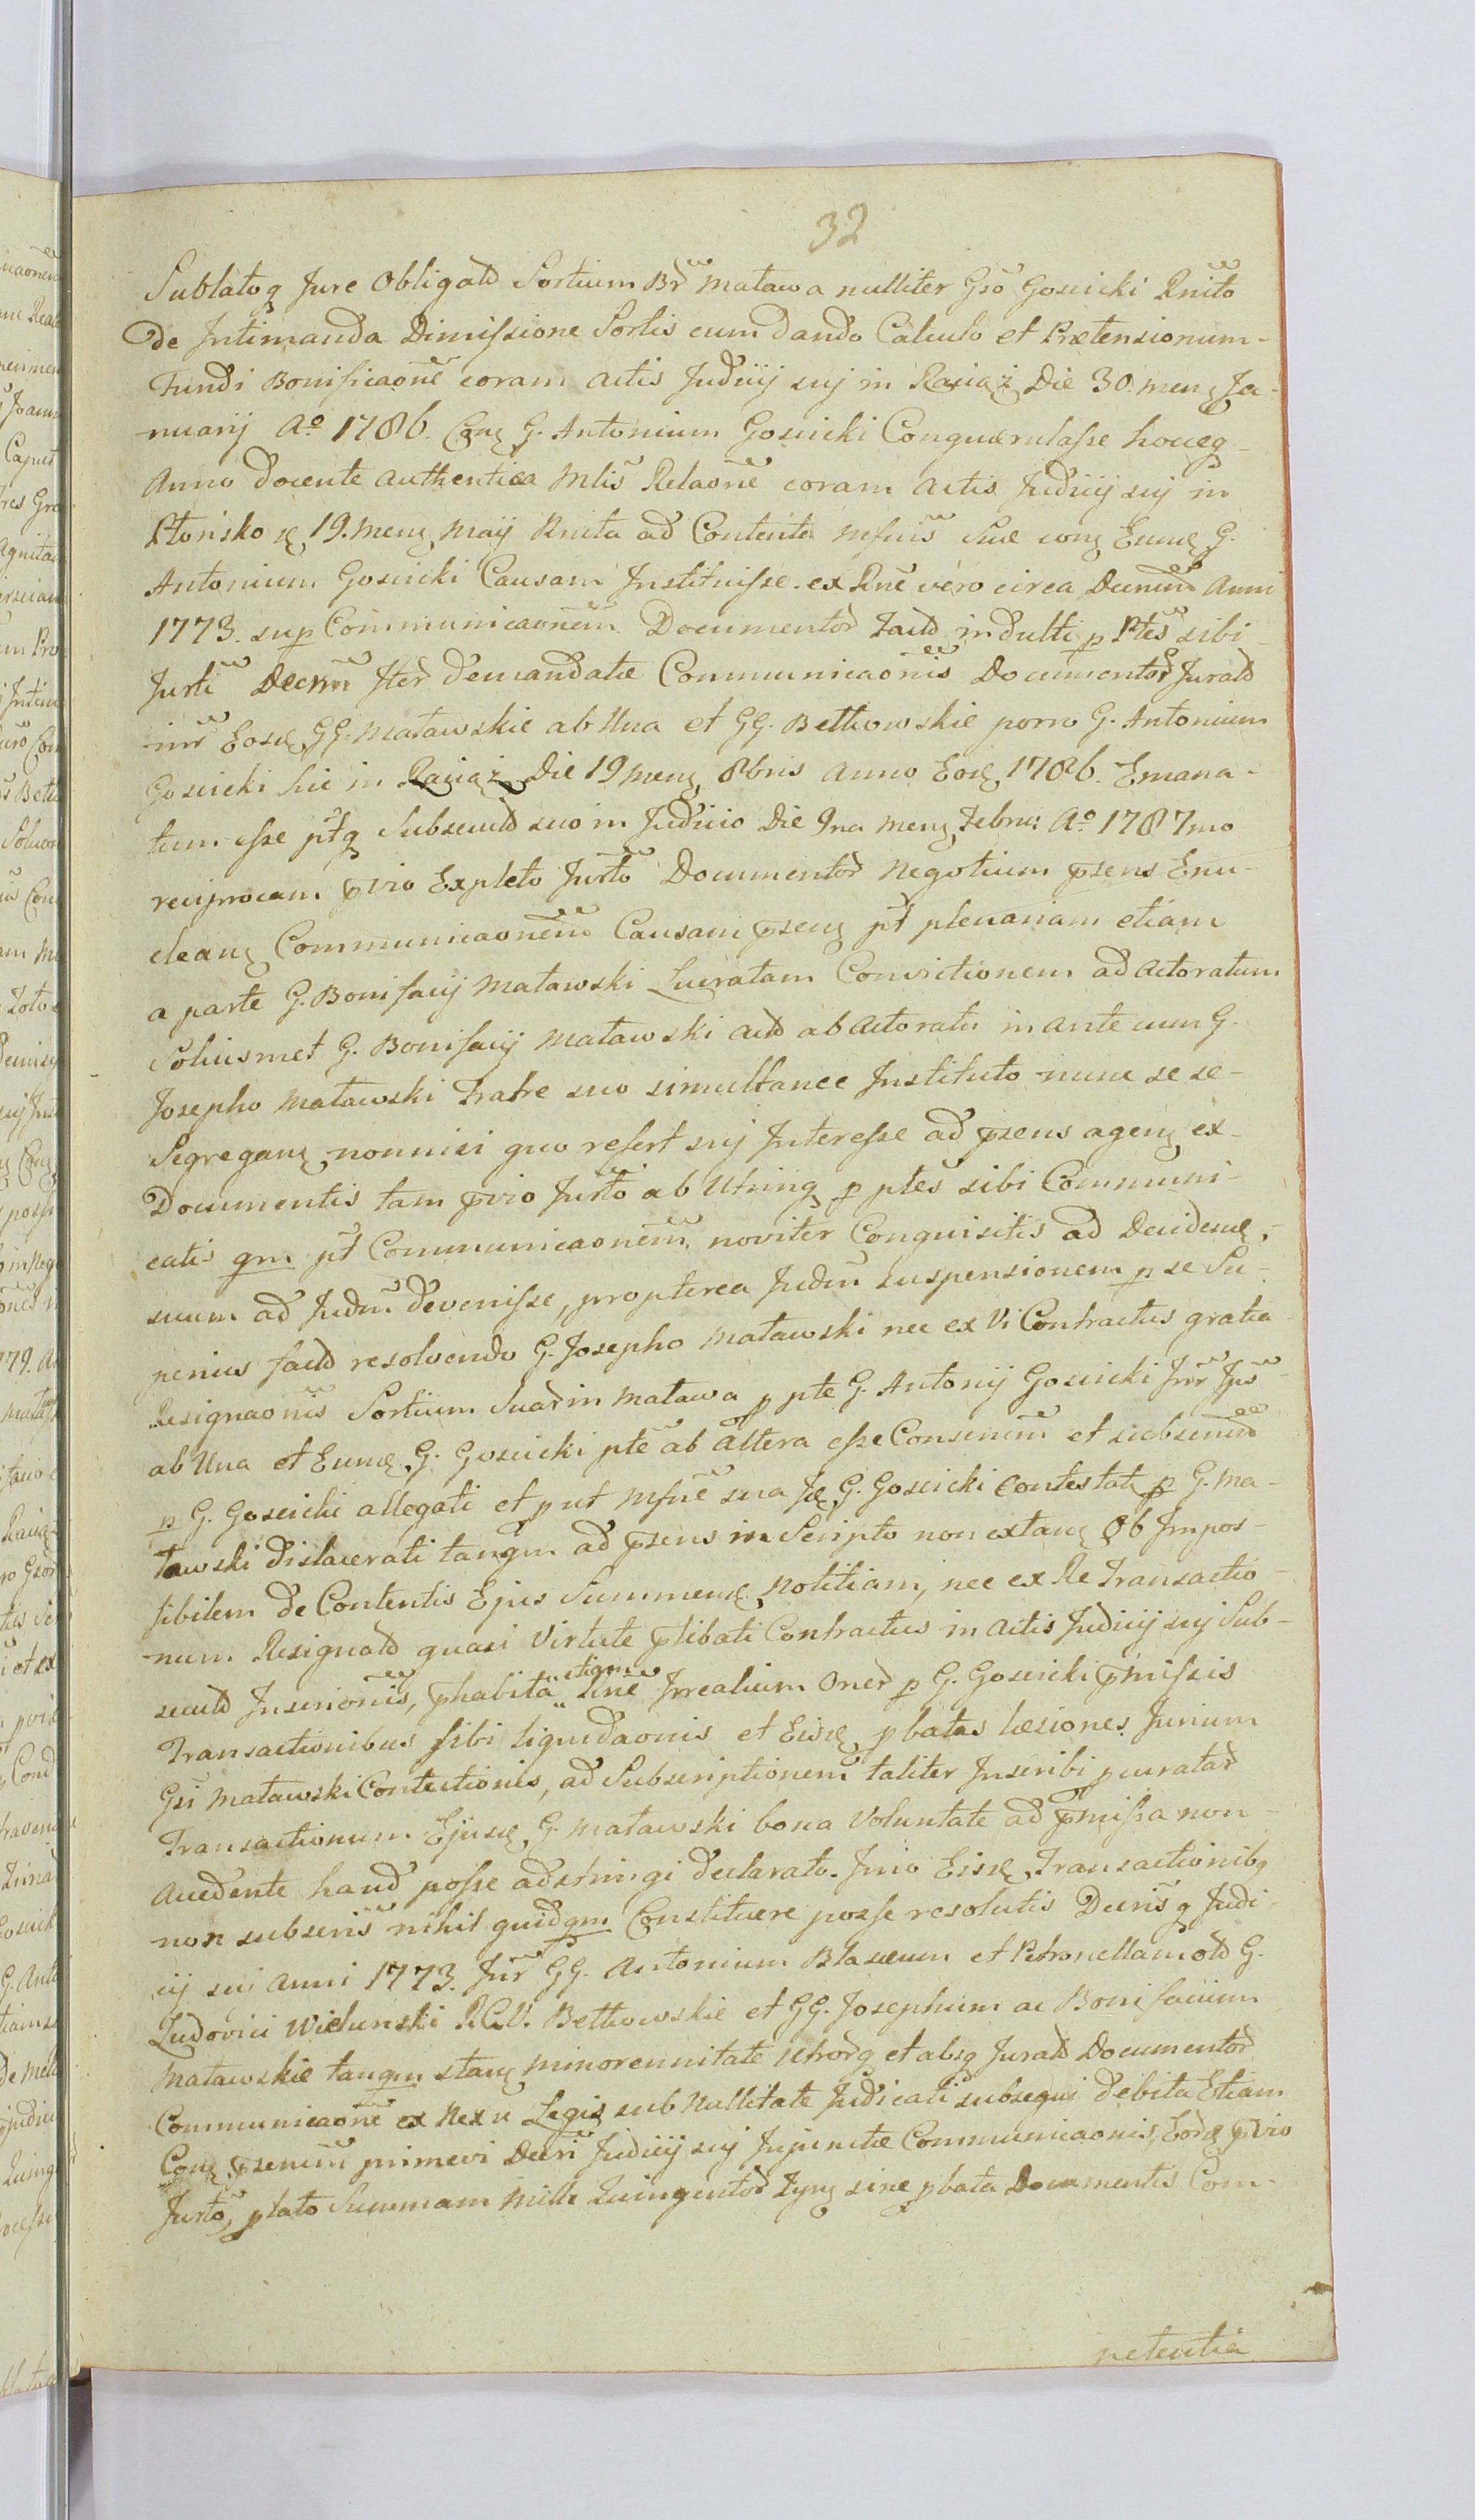 32
Sublatoq Jure Obligatd Sortium Br̃ Matawa nulliter Gsõ Goscicki Rnitõ
De Intimanda Dimissione Sortis cum dando Calculo et Prætensionum-
Fundi Bonificaonẽ coram Actis Judicij suj in Raciąż Die 30. menę Ja-
nuarij Aº 1786. Conę G. Antonium Goscicki Conquærulasse hoceq
Anno docente authentica Mlis̃ Relaonẽ coram Actis Judicij suj in
Płońsko ę 19. menę Maij Rnita ad Contenta Mfnis̃ Suæ conę Eumę G.
Antonium Goscicki Causam Instituisse. ex Rnẽ vero circa Decrum Anni
1773. sup Communicaonem̃ Documentor̃ Factd indulti p Ptes̃ sibi
Jurti Decrm̃ Iter̃ demandatæ Communicaonis̃ Documentor̃ Juratd
inr̃ Eosę GG. Matawskie ab Una et GG. Betkowskie porro G. Antonium
Goscicki hic in Raciąż Die 19 menę 8bris Anno Eoę 1786. Emana-
tum esse ptq Subsecutd suo in Judicio Die 9na menę Febru: Aº 1787mo
reciprocam p̃vio Expleto Jurtõ Documentor̃ Negotium p̃sens Enu-
cleanę Communicaonem̃ Causam p̃senę pt̃ plenariam etiam
a parte G. Bonifacij Matawski Lucratam Convictionem ad Actoratum
Soliusmet G. Bonifacij Matawski actd ab Actoratu in ante cum G.
Josepho Matawski Fratre suo simultanee Instituto nunc se se-
Segreganę nonnisi quo refert suj Interesse ad p̃sens agenę ex-
Documentis tam p̃vio Jurtõ ab Utrinq p ptes̃ sibi Communi-
catis qm pt̃ Communicaonem̃ noviter Conquisitis ad Decidenę,
suum ad Judm̃ devenisse, propterea Judm̃ suspensionem p se Su-
perius factd resolvendo G. Josepho Matawski nec ex Vi Contractus gratia
Resignaonis̃ Sortium Suar̃ in Matawa p pte G. Antonij Goscicki Inr̃ Ips̃
ab Una et Eumę G. Goscicki ptẽ ab altera esse Consencm̃ et subsencd̃
p G. Goscicki allegati et p ut Mfnẽ sua Ię G. Goscicki Contestatę p G. Ma-
tawski dislacerati tanqm ad p̃sens in Scripto non extanę Ob Impos-
sibilem de Contentis Ejus Summenę Notitiam, nec ex Re Transactio-
num Resignatd quasi Virtute p̃libati Contractus in Actis Judicij suj Sub-
secutd Inserionis̃, p̃habitã etiam Linẽ Irrealium Oner̃ p G. Goscicki p̃missis
Transactionibus sibi liquidaonis et Eisę pbatas læsiones Jurium
Gsi Matawski Contectionis, ad Subscriptionem̃ taliter Inscribi pcuratar̃
Transactionum Ejusę G. Matawski bona Voluntate ad p̃missa non-
Accedente haud posse adstringi declarato. Imo Eisę Transactionibq
non subscris̃ nihil quidqm Constituere posse resolutis Decris̃q Judi-
cij sui Anni 1773. Inr̃ GG. Antonium Blasium et Petronellam otd G.
Ludovici Wielunski R.C.V. Betkowskie et GG. Josephum ac Bonifacium
Matawskie tanqm stanę minorennitate Utror̃q et absq Juratd Documentor̃
Communicaonẽ ex Nexu Legis sub Nullitate Judicati subsequi debita Etiam
Conę p̃sencm̃ primævi Decri Judicij suj Injunctæ Communicaonis, Eodę p̃vio
Jurtõ, plato Summam Mille Quingentor̃ Tynę sine pbata Documentis Com-
petentia